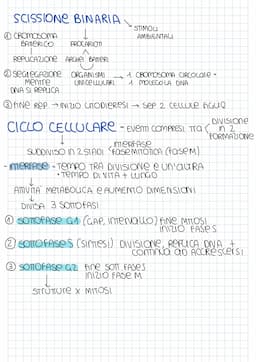 SCISSIONE BINARIA
STIMOLI
AMBIENTALI
① CROMOSOMA
BATTERICO
PROCARIOTI
REPLICAZIONE
ARCHEI BATTERI
② SEGREGAZIONE
MENTRE
DNA SI REPLICA
ORGANISMI
UNICELLULARI
1 CROMOSOMA CIRCOLARE -
1 MOLECOLA DNA
③ FINE REP. → INIZIO CITODIERESI → SEP 2 CELLULE FIGLIE
CICLO CELLULARE - EVENTI COMPRESI TRA
DIVISIONE
IN 2
FORMAZIONE
SUDDIVISO IN 2 STADI
INTERFASE
FASE MITOTICA (FASE M)
- INTERFASE - TEMPO TRA DIVISIONE E UN'ALTRA
• TEMPO DI VITA + LUNGO
ATTIVITÀ METABOLICA E AUMENTO DIMENSIONI
DIVISA 3 SOTTOFASI
① SOTTOFASE G1 (GAP, INTERVALLO) FINE MITOSI
INIZIO FASE S
② SOTTOFASE S (SINTESI) DIVISIONE, REPLICA DNA +
CONTINUA AD ACCRESCERSI
③ SOTTOFASE G2 FINE SOTT. FASE S
INIZIO FASE M
STRUTTURE X MITOSI